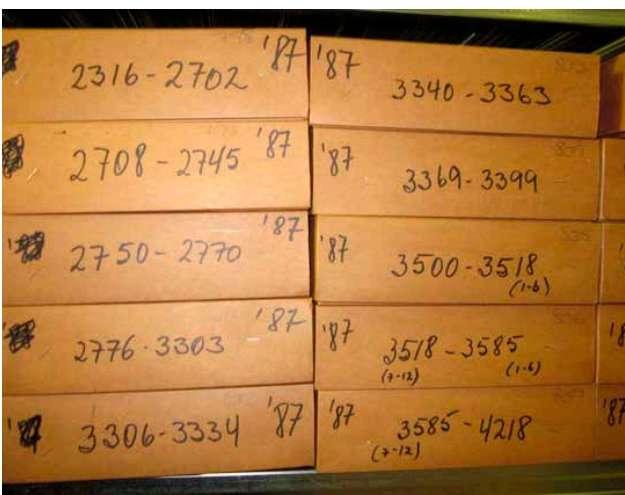 2316-2702 '87
2708-2745 '87
2750-2770 '87
2776-3303 '87
3306-3334 '87
'87 3340-3363
'87 3369-3399
'87 3500-3518
(1-6)
'87 3518-3585
(7-12) (1-6)
'87 3585-4218
(7-12)
'87